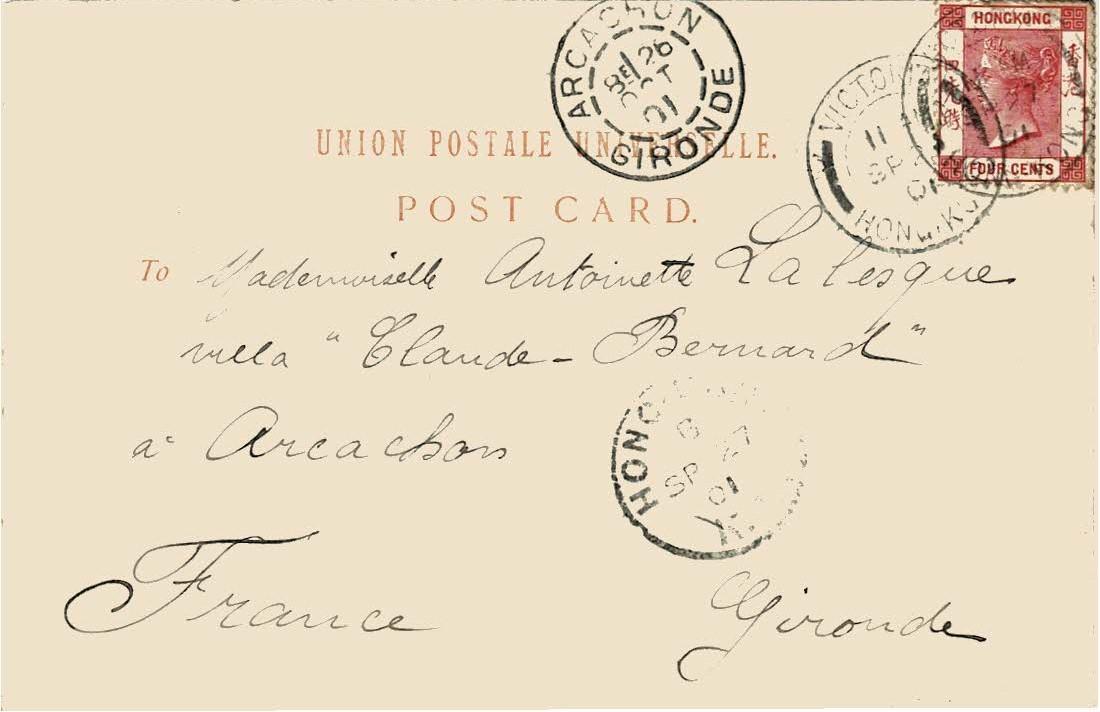 ARCACHON
8E 26
OCT
01
GIRONDE
HONGKONG
FOUR CENTS
VICTORIA
11
SP
01
HONG.KO
UNION POSTALE UNIVERSELLE.
POST CARD.
To Mademoiselle Antoinette Lalesque
villa "Claude-Bernard"
à Arcachon
HONG K
G
SP 27
01
France Gironde